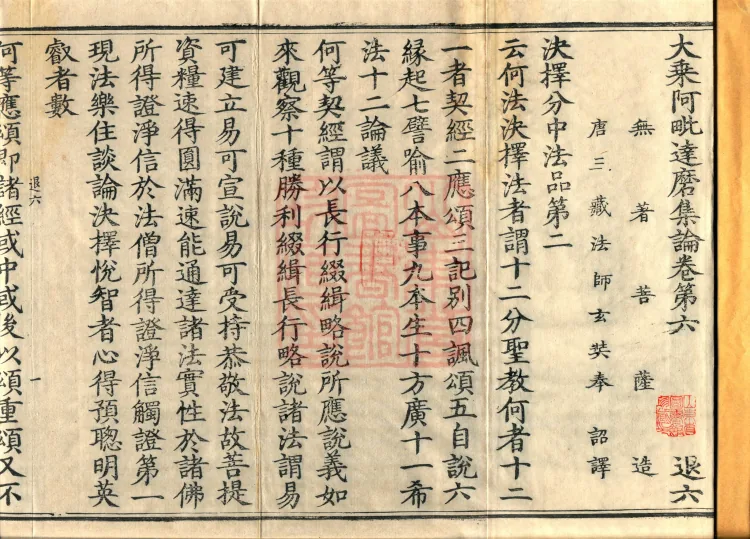 大乘阿毗達磨集論卷第六 退六
無著菩薩造
唐三藏法師玄奘奉 詔譯
決擇分中法品第二
云何法決擇法者謂十二分聖教何者十二
一者契經二應頌三記別四諷頌五自說六
緣起七譬喻八本事九本生十方廣十一希
法十二論議
何等契經謂以長行綴緝略說所應說義如
來觀察十種勝利綴緝長行略說諸法謂易
可建立易可宣說易可受持恭敬法故菩提
資糧速得圓滿速能通達諸法實性於諸佛
所得證淨信於法僧所得證淨信觸證第一
現法樂住談論決擇悅智者心得預聰明英
叡者數
退六 一
何等應頌即諸經或中或後以頌重頌又不